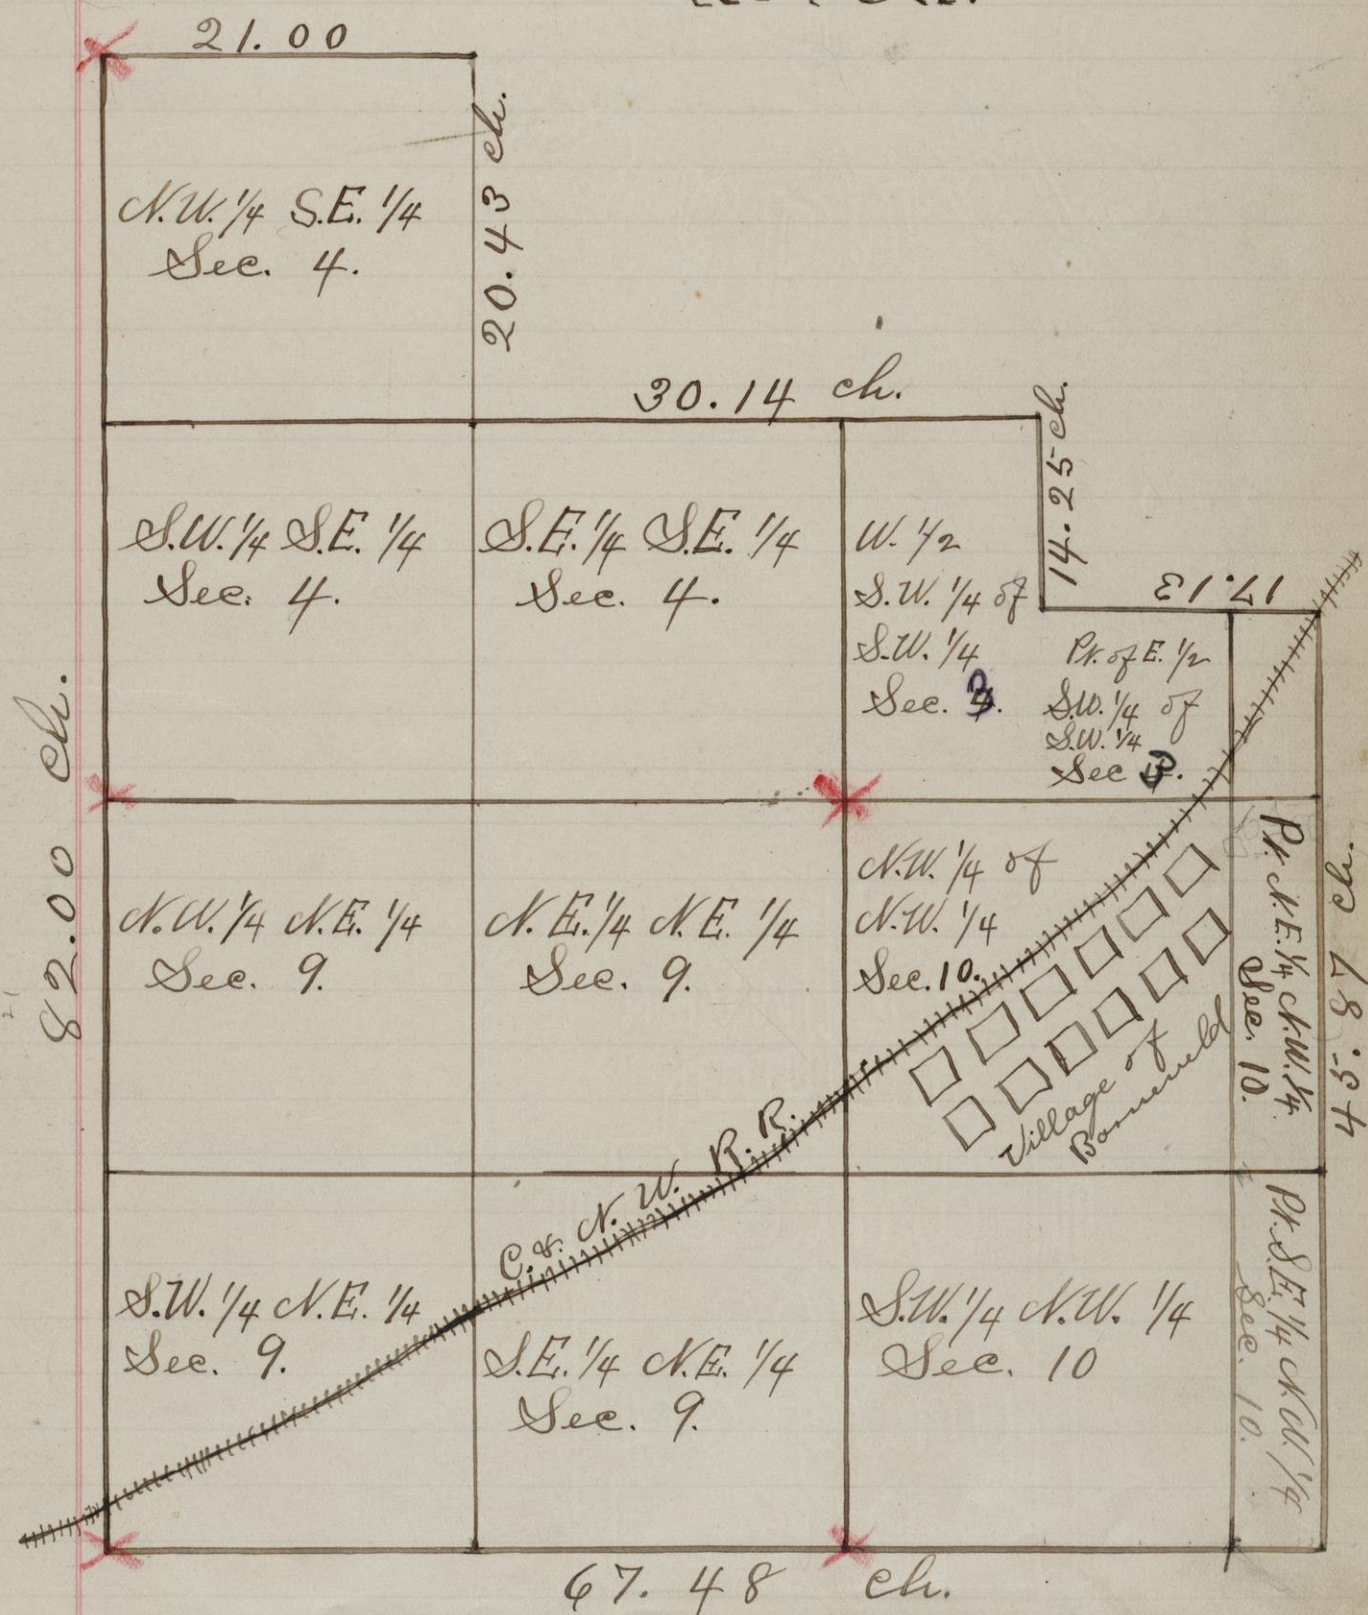 21.00
20.43 ch.
N.W. 1/4 S.E. 1/4
Sec. 4.
30.14 ch.
14.25 ch.
17.13
S.W. 1/4 S.E. 1/4
Sec. 4.
S.E. 1/4 S.E. 1/4
Sec. 4.
W. 1/2
S.W. 1/4 of
S.W. 1/4
Sec. 3.
Pt. of E. 1/2
S.W. 1/4 of
S.W. 1/4
Sec 3.
82.00 ch.
N.W. 1/4 N.E. 1/4
Sec. 9.
N.E. 1/4 N.E. 1/4
Sec. 9.
N.W. 1/4 of
N.W. 1/4
Sec. 10.
Village of
Pt. N.E. 1/4 N.W. 1/4
Sec. 10.
45.87 ch.
C. & N. W. R. R.
S.W. 1/4 N.E. 1/4
Sec. 9.
S.E. 1/4 N.E. 1/4
Sec. 9.
S.W. 1/4 N.W. 1/4
Sec. 10
Pt. S.E. 1/4 N.W. 1/4
Sec. 10.
67.48 ch.